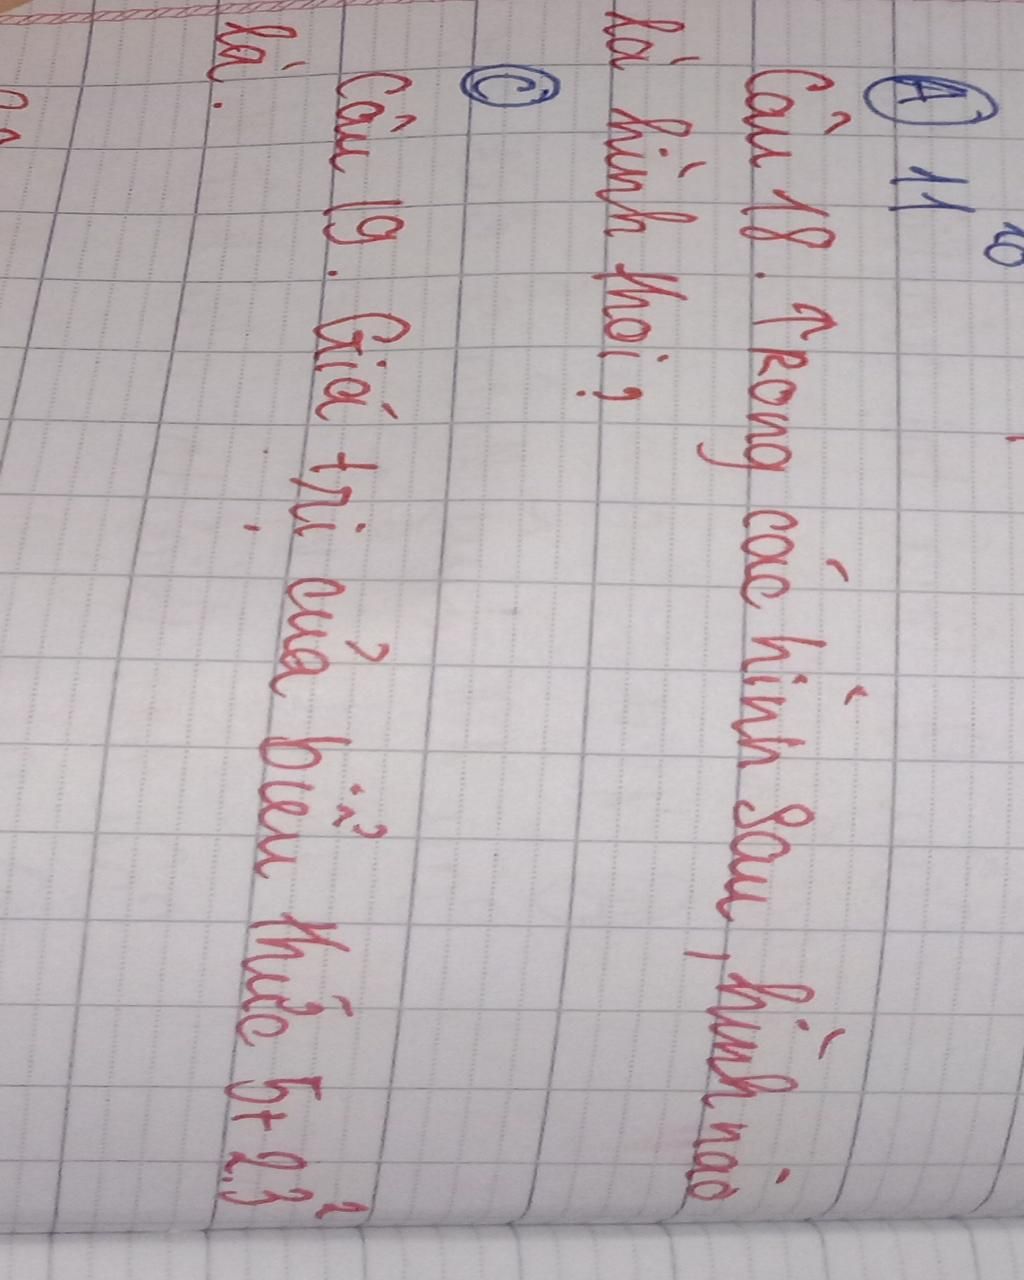 A 11
Câu 18. Trong các hình sau, hình nào
là hình thoi?
C
Câu 19. Giá trị của biểu thức 5+2.3²
là.